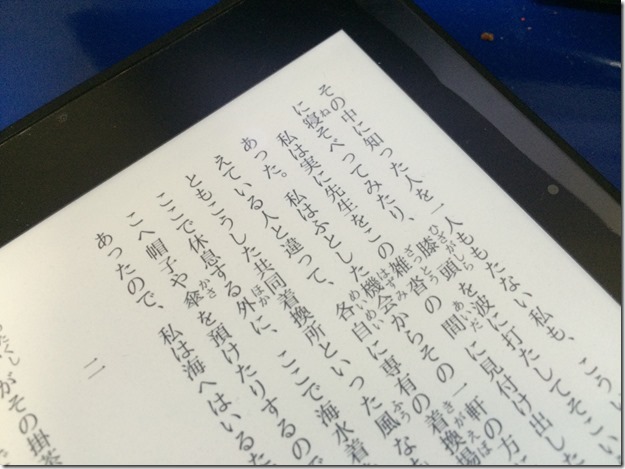 その中に知った人を一人ももたない私も、こうい
に寝そべってみたり、膝頭を波に打たしてそこい
私は実に先生をこの雑沓の間に見付け出した
あった。私はふとした機会からその一軒の方
えている人と違って、各自に専有の着換場
ともこうした共同着換所といった風な
ここで休息する外に、ここで海水着
こへ帽子や傘を預けたりするので
あったので、私は海へはいるた
二
がその掛茶